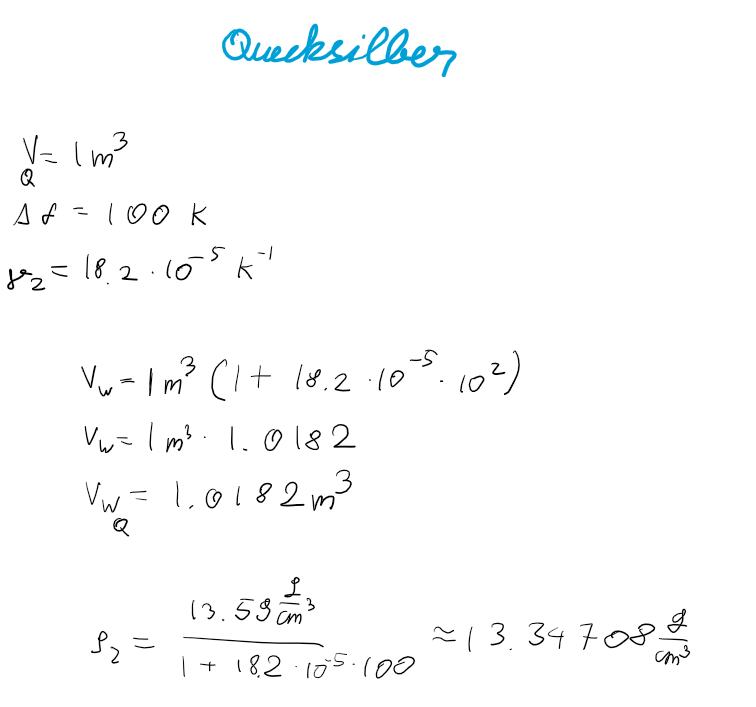 Quecksilber
V_Q = 1 m³
Δt = 100 K
γ₂ = 18.2 · 10⁻⁵ K⁻¹
V_w = 1 m³ (1 + 18.2 · 10⁻⁵ · 10²)
V_w = 1 m³ · 1.0182
V_w_Q = 1.0182 m³
ρ₂ = 13.59 g/cm³ / (1 + 18.2 · 10⁻⁵ · 100) ≈ 13.34708 g/cm³